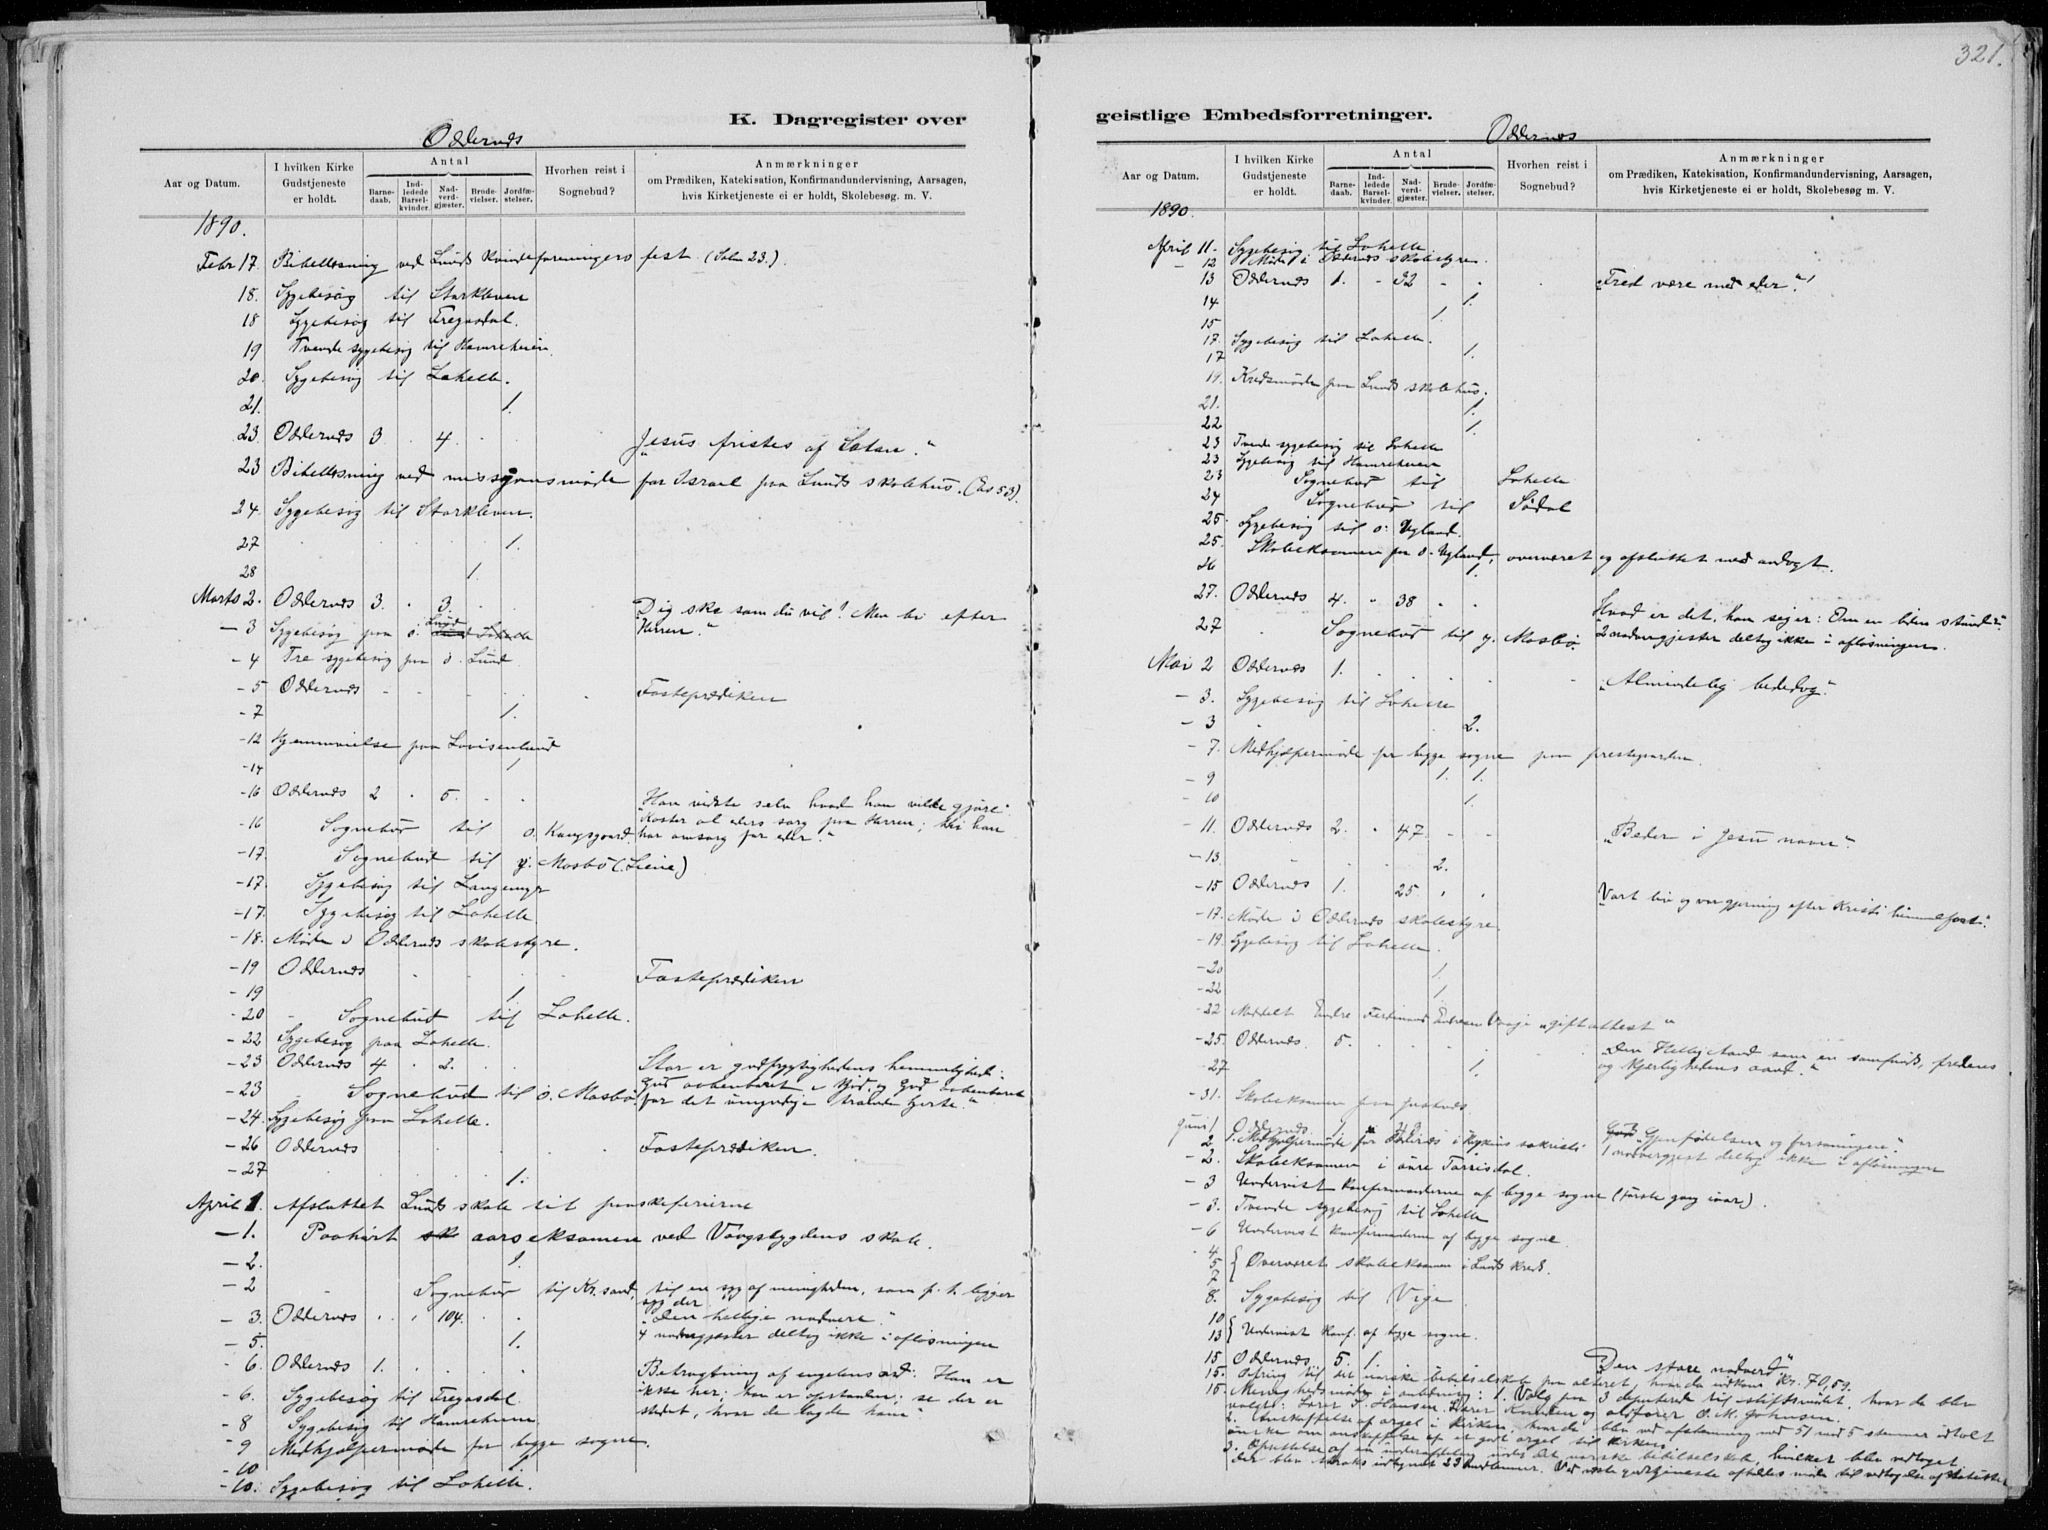 321.
K. Dagregister over
Oddernæs
Aar og Datum.
I hvilken Kirke Gudstjeneste er holdt.
Antal
Barne-daab.
Ind-ledede Barsel-kvinder.
Nad-verd-gjæster.
Brude-vielser.
Jordfæ-stelser.
Hvorhen reist i Sognebud?
Anmærkninger
om Prædiken, Katekisation, Konfirmandundervisning, Aarsagen,
hvis Kirketjeneste ei er holdt, Skolebesøg. m. V.
1890.
Febr 17. Bibellæsning ved Lunds Kvindeforenings fest. (Salm 23.)
18. Sygebesøg til Starkleven
18 Sygebesøg til Fregasdal.
19 Tvende sygebesøg til Hamreheien.
20. Sygebesøg til Lahelle.
21. 1.
23. Oddernæs 3. . 4. . . „Jesus fristes af Satan."
23 Bibellæsning ved missionsmøde for Israel paa Lunds skolehus. (Es 53).
24. Sygebesøg til Starkleven.
27 1.
28 1.
Marts 2. Oddernæs 3. . 3. „Dig ske som du vil! Men bi efter
Herren."
- 3 Sygebesøg paa ö. Lund
- 4 Tre sygebesøg paa ö. Lund.
- 5 Oddernæs - - - . . Fasteprædiken
- 7 1.
- 12 Hjemmevielse paa Lovisenlund
- 14 1
- 16 Oddernæs 2 . 5. . . „Han vidste selv hvad han vilde gjøre".
- 16 Sognebud til ö. Kongsgaard. „Kaster al eders sorg paa Herren; thi han
har omsorg for eder."
- 17. Sognebud til y. Mosbö (Liene)
- 17. Sygebesøg til Langemyr
- 17. Sygebesøg til Lahelle
- 18. Møde i Oddernæs skolestyre.
- 19 Oddernæs . . . . Fasteprædiken
- 19 1
- 20 - Sognebud til Lahelle.
- 22 Sygebesøg paa Lahelle.
- 23 Oddernæs 4 . 2. . Stor er gudfrygtighedens hemmelighed:
Gud aabenbaret i kjød, og Gud aabenbaret
- 23 Sognebud til ö. Mosbö. for det umyndige troende hjerte."
- 24. Sygebesøg paa Lahelle.
- 26 Oddernæs . . Fasteprædiken.
- 27 1.
April 1. Afsluttet Lunds skole til paaskeferierne
- 1. Paahørt aarseksamen ved Vaagsbygdens skole.
- 2. 1.
- 2 - Sognebud til Kr.sand, til en syg af menigheden, som p. t. ligger
syg der
- 3. Oddernæs . . 104. . . „Den hellige nadvere".
4 nadvergjæster deltog ikke i afløsningen
- 5. 1.
- 6. Oddernæs 1. . . . . Betragtning af engelens ord: Han er
ikke her; han er opstanden; se der er
stedet, hvor de lagde ham"
- 6. Sygebesøg til Fregasdal.
- 8 Sygebesøg til Hamreheien.
- 9 Medhjælpermøde for begge sogne.
- 10 1
- 10. Sygebesøg til Lahelle.
geistlige Embedsforretninger.
Oddernæs
Aar og Datum.
I hvilken Kirke Gudstjeneste er holdt.
Antal
Barne-daab.
Ind-ledede Barsel-kvinder.
Nad-verd-gjæster.
Brude-vielser.
Jordfæ-stelser.
Hvorhen reist i Sognebud?
Anmærkninger
om Prædiken, Katekisation, Konfirmandundervisning, Aarsagen,
hvis Kirketjeneste ei er holdt, Skolebesøg m. V.
1890.
April 11. Sygebesøg til Lahelle.
- 12 Møde i Oddernæs skolestyre.
13 Oddernæs 1. - 32 - . . „Fred være med eder"!
14 1.
15 1.
17. Sygebesøg til Lahelle.
17 1.
19. Kredsmøde paa Lunds skolehus.
21. 1.
22 1.
23 Tvende sygebesøg til Lahelle
23 Sygebesøg til Hamreheien
23 Sognebud til Lahelle
24 Sognebud til Sødal
25. Sygebesøg til ö. Ugland.
25. Skoleeksamen paa ö. Ugland, overværet og afsluttet med andagt.
26 1.
27. Oddernæs 4. " 38 " . „Hvad er det, han siger: Om en liden stund?"
27 Sognebud til y. Mosbö. 2 nadvergjester deltog ikke i afløsningen.
Mai 2 Oddernæs 1. . . . . . „Almindelig bededag".
- 3. Sygebesøg til Lahelle
- 3 2.
- 7. Medhjælpermøde for begge sogne paa prestegaarden.
- 9 1. 1.
- 10 1.
- 11. Oddernæs 2. " 47 - - „Beder i Jesu navn".
- 13. 2.
- 15 Oddernæs 1. 25 . . Vort liv og vor gjerning efter Kristi himmelfart".
- 17. Møde i Oddernæs skolestyre
- 19. Sygebesøg til Lahelle.
- 20 1.
- 22 1
- 22 Meddelt Endre Ferdinand Endresen Vaage „giftattest"
- 25. Oddernæs. 5. . . . „Den Hellig Aand som en samfunds, fredens
og kjærlighedens aand."
- 27 1.
- 31. Skoleeksamen paa Justnæs.
Juni 1 Oddernæs. 1 Gjenfødelsen og forsoningen".
1 nadvergjest deltog ikke i afløsningen
2. Medhjælpermøde for Oddernæs i kirkens sakristi
- 2. Skoleeksamen i øvre Torrisdal.
- 3 Undervist konfirmanderne af begge sogne (første gang iaar).
- 3. Tvende sygebesøg til Lahelle
- 6 Undervist konfirmanderne af begge sogne.
- 4
5 { Overværet skoleeksamen i Lunds kreds.
7
8. Sygebesøg til Vige
10
13 { Undervist konf. af begge sogne.
15 Oddernæs 5. 1. „Den store nadverd"
15. Ofring til det norske bibelselskab paa alteret, hvor da indkom Kr. 70,59.
15. Menighedsmøde i anledning: 1. Valg paa 3 deputerede til stiftsmødet, hvor da blev
valgt: Lærer T. Hansen, Lærer Knudsen og ordfører O. M. Johnsen.
2. Anskaffelse af orgel i kirken, hvor da blev ved afstemning med 51 mod 5 stemmer udtalt
ønske om anskaffelse af et godt orgel til kirken.
3. Oprettelse af en underafdeling under det norske bibelselskab, hvilket blev vedtaget
der blev straks indtegnet 23 medlemmer. Ved næste gudstjeneste afholdes møde til vedtagelse af statutter